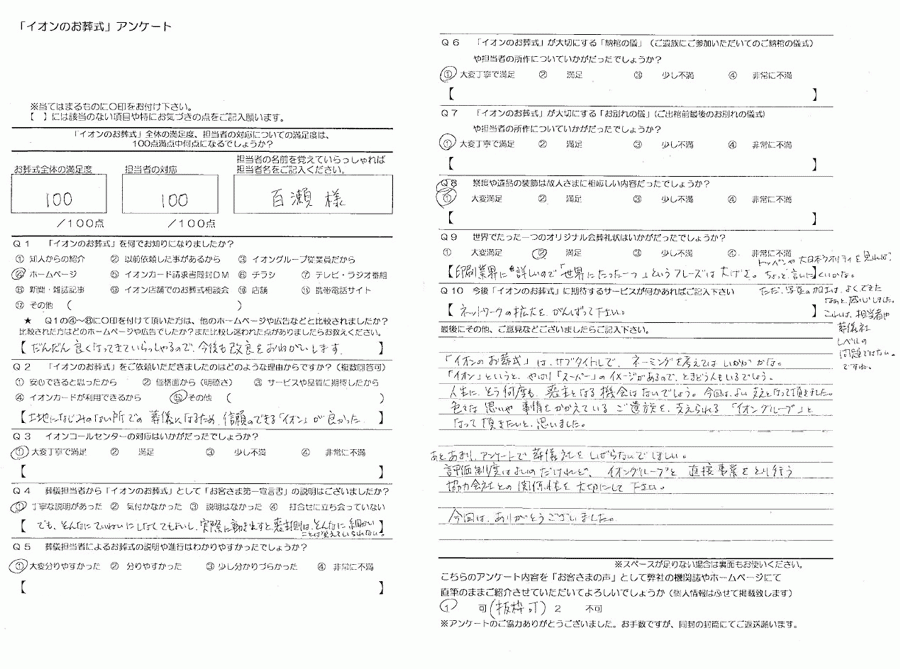 「イオンのお葬式」アンケート
※当てはまるものに○印をお付け下さい。
【　】には該当のない項目や特にお気づきの点をご記入願います。
「イオンのお葬式」全体の満足度、担当者の対応についての満足度は、
100点満点中何点になるでしょうか?
お葬式全体の満足度
100
/100点
担当者の対応
100
/100点
担当者の名前を覚えていらっしゃれば
担当者名をご記入ください。
百瀬 様
Q1 「イオンのお葬式」を何でお知りになりましたか?
① 知人からの紹介 ② 以前依頼した事があるから ③ イオングループ従業員だから
④ ホームページ ⑤ イオンカード請求書同封DM ⑥ チラシ ⑦ テレビ・ラジオ番組
⑧ 新聞・雑誌記事 ⑨ イオン店舗でのお葬式相談会 ⑩ 店舗 ⑪ 携帯電話サイト
⑫ その他 ( )
★ Q1の④~⑧に○印を付けて頂いた方は、他のホームページや広告などと比較されましたか?
比較された方はどのホームページや広告でしたか?また比較し迷われた点がありましたらお教えください。
【だんだん良くなってきていらっしゃるので、今後も改良をおねがいします。
Q2 「イオンのお葬式」をご依頼いただきましたのはどのような理由からですか?(複数回答可)
① 安心できると思ったから ② 価格面から(明瞭さ) ③ サービスや品質に期待したから
④ イオンカードが利用できるから ⑤ その他 ( )
【土地になじみのない所での葬儀になるため、信頼のできる「イオン」が良かった 】
Q3 イオンコールセンターの対応はいかがだったでしょうか?
① 大変丁寧で満足 ② 満足 ③ 少し不満 ④ 非常に不満
【 】
Q4 葬儀担当者から「イオンのお葬式」として「お客さま第一宣言書」の説明はございましたか?
① 丁寧な説明があった ② 気付かなかった ③ 説明はなかった ④ 打合せに立ち会っていない
【でも、そんなにていねいにしなくてもよいし、実際に動きますと、そんなに細かい
ことは覚えていられない。】
Q5 葬儀担当者によるお葬式の説明や進行はわかりやすかったでしょうか?
① 大変分りやすかった ② 分りやすかった ③ 少し分かりづらかった ④ 非常に不満
【 】
Q6 「イオンのお葬式」が大切にする「納棺の儀」(ご遺族にご参加いただいてのご納棺の儀式)
や担当者の所作についていかがだったでしょうか?
① 大変丁寧で満足 ② 満足 ③ 少し不満 ④ 非常に不満
【 】
Q7 「イオンのお葬式」が大切にする「お別れの儀」(ご出棺前最後のお別れの儀式)
や担当者の所作についていかがだったでしょうか?
① 大変丁寧で満足 ② 満足 ③ 少し不満 ④ 非常に不満
【 】
Q8 祭壇や遺品の装飾は故人さまに相応しい内容だったでしょうか?
① 大変満足 ② 満足 ③ 少し不満 ④ 非常に不満
【 】
Q9 世界でたった一つのオリジナル会葬礼状はいかがだったでしょうか?
① 大変満足 ② 満足 ③ 少し不満 ④ 非常に不満
【印刷業界に詳しいので「世界にたった一つ」というフレーズは大げさ。ちょっと言いにくいかな。
Q10 今後「イオンのお葬式」に期待するサービスが何かあればご記入下さい
【ネットワークの拡大を、がんばって下さい。 】
ただ、写真の加工は、よくできた
なぁと、感心しました。
これは、担当者や
葬儀社
レベルの
問題ではない
ですね。
最後にその他、ご意見などございましたらご記入下さい。
「イオンのお葬式」は、サブタイトルで、ネーミングを考えては いかがかな。
「イオン」というと、やはり「スーパー」のイメージがあるので、とまどう人もいるでしょう。
人生に、そう何度も、喪主となる機会はないでしょう。今回は、よい支えとなって頂きました。
色々な思いや 事情をかかえている ご遺族を、支えられる「イオングループ」と
なって頂きたいと、思いました。
あと、あまり、アンケートで葬儀社をしばらないでほしい。
評価制度はよいのだけれど、イオングループと 直接事業をとり行う
協力会社との関係性を大切にして下さい。
今回は、ありがとうございました。
※スペースが足りない場合は裏面もお使いください。
こちらのアンケート内容を「お客さまの声」として弊社の機関誌やホームページにて
直筆のままご紹介させていただいてよろしいでしょうか(個人情報は伏せて掲載致します)
1 可(抜粋可) 2 不可
※アンケートのご協力ありがとうございました。お手数ですが、同封の封筒にてご返送願います。